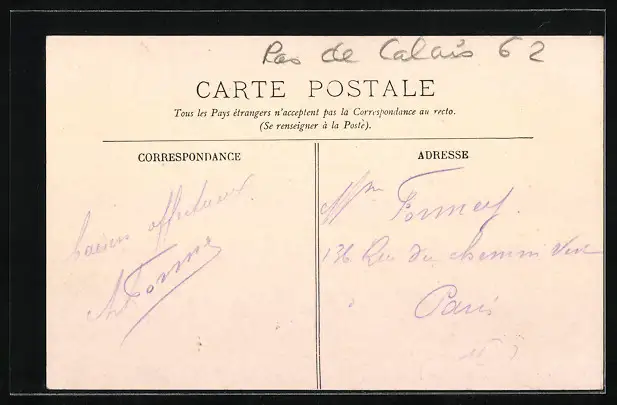 Pas de Calais 62
CARTE POSTALE
Tous les Pays étrangers n'acceptent pas la Correspondance au recto.
(Se renseigner à la Poste).
CORRESPONDANCE
ADRESSE
affectueux
Mme
136 Rue du chemin Vert
Paris